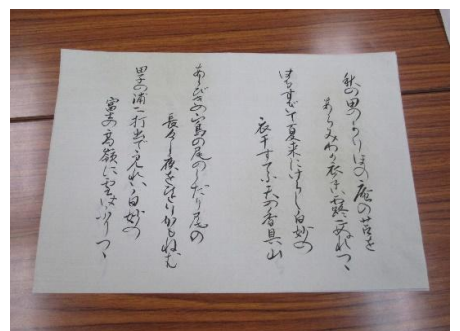 秋の田のかりほの庵の苫を
あらみわが衣手は露にぬれつゝ
はるすぎて夏来にけらし白妙の
衣干すてふ天の香具山
あしびきの山鳥の尾のしだり尾の
長々し夜をひとりかもねむ
田子の浦に打出でて見れバ白妙の
富士の高嶺に雪はふりつゝ